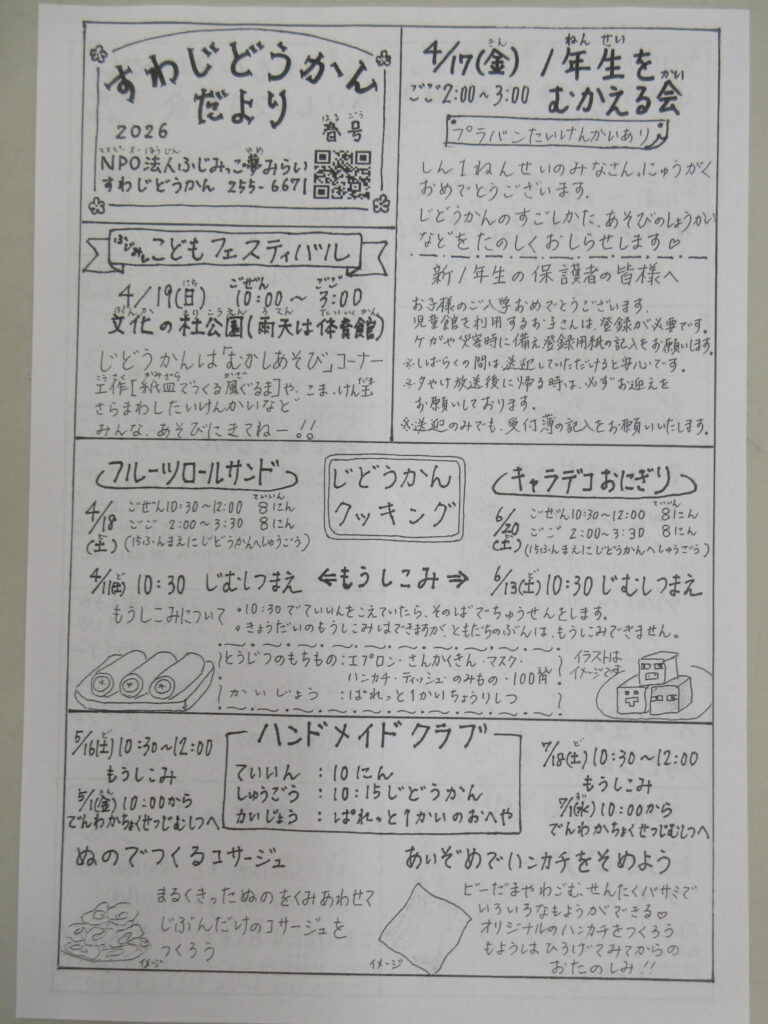 すわじどうかん
だより
2026 春号
はるごう
NPO法人ふじみっこ夢みらい
すわじどうかん 255-6671
4/17(金) 1年生を
ごご2:00~3:00 むかえる会
プラバンたいけんかいあり
しん1ねんせいのみなさん、にゅうがく
おめでとうございます。
じどうかんのすごしかた、あそびのしょうかい
などをたのしくおしらせします♡
新1年生の保護者の皆様へ
お子様のご入学おめでとうございます。
児童館を利用するお子さんは、登録が必要です。
ケガや災害時に備え登録用紙の記入をお願いします。
※しばらくの間は、送迎していただけると安心です。
※夕やけ放送後に帰る時は、必ずお迎えを
お願いしております。
※送迎のみでも、受付簿の記入をお願いいたします。
ふじみし こどもフェスティバル
4/19(日) 10:00~3:00
にち ごぜん ごご
文化の杜公園(雨天は体育館)
ぶんか もりこうえん うてん たいいくかん
じどうかんは「むかしあそび」コーナー
工作[紙皿でつくる風ぐるま]や、こま、けん玉
さらまわしたいけんかいなど
みんな、あそびにきてねー!!
じどうかん
クッキング
フルーツロールサンド
4/18(土)
ごぜん10:30~12:00 8にん
ごご 2:00~3:30 8にん
(15ふんまえにじどうかんへしゅうごう)
キャラデコおにぎり
6/20(土)
ごぜん10:30~12:00 8にん
ごご 2:00~3:30 8にん
(15ふんまえにじどうかんへしゅうごう)
10:30 じむしつまえ ⇐もうしこみ⇒ 6/13(土)10:30 じむしつまえ
もうしこみについて
•10:30でていいんをこえていたら、そのばでちゅうせんをします。
•きょうだいのもうしこみはできますが、ともだちのぶんは、もうしこみできません。
とうじつのもちもの:エプロン・さんかくきん・マスク・
ハンカチ・ティッシュ・のみもの・100円
かいじょう :ぱれっと1かいちょうりしつ
イラストは
イメージです
ハンドメイドクラブ
ていいん :10にん
しゅうごう :10:15じどうかん
かいじょう :ぱれっと1かいのおへや
5/16(土)10:30~12:00
もうしこみ
5/1(金)10:00から
でんわかちょくせつじむしつへ
7/18(土)10:30~12:00
もうしこみ
7/1(水)10:00から
でんわかちょくせつじむしつへ
ぬのでつくるコサージュ
まるくきったぬのをくみあわせて
じぶんだけのコサージュを
つくろう
イメージ
あいぞめでハンカチをそめよう
ビーだまやわごむ、せんたくバサミで
いろいろなもようができる♡
オリジナルのハンカチをつくろう
もようは、ひろげてみてからの
おたのしみ!!
イメージ